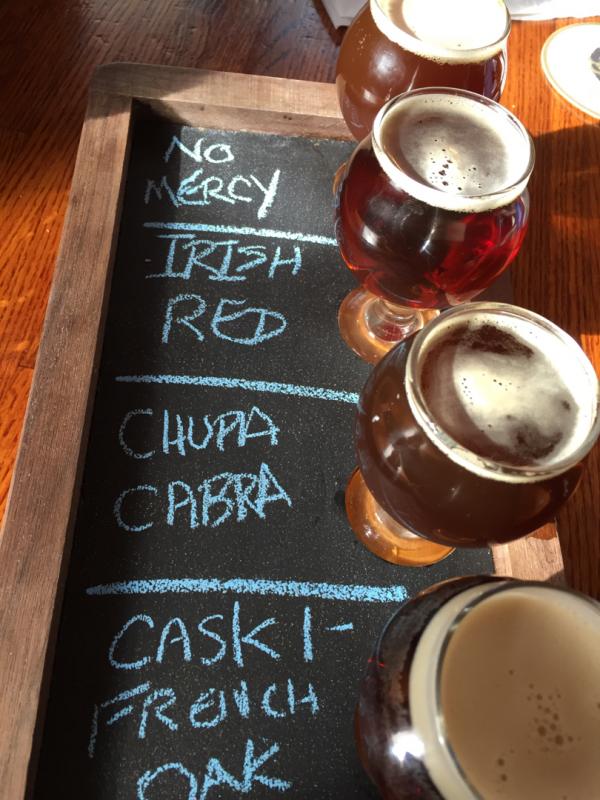 NO
MERCY
IRISH
RED
CHUPA
CABRA
CASK 1-
FRENCH
OAK